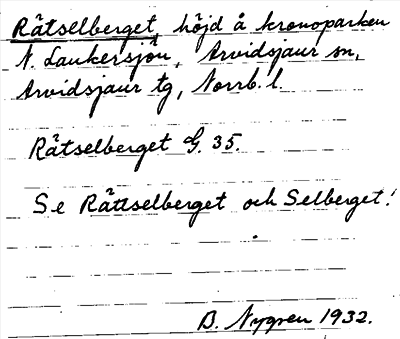 Råtselberget, höjd å kronoparken
N. Laukersjön, Arvidsjaur sn,
Arvidsjaur tg, Norrb. l.
Råtselberget G. 35.
Se Råttselberget och Selberget!
B. Nygren 1932.